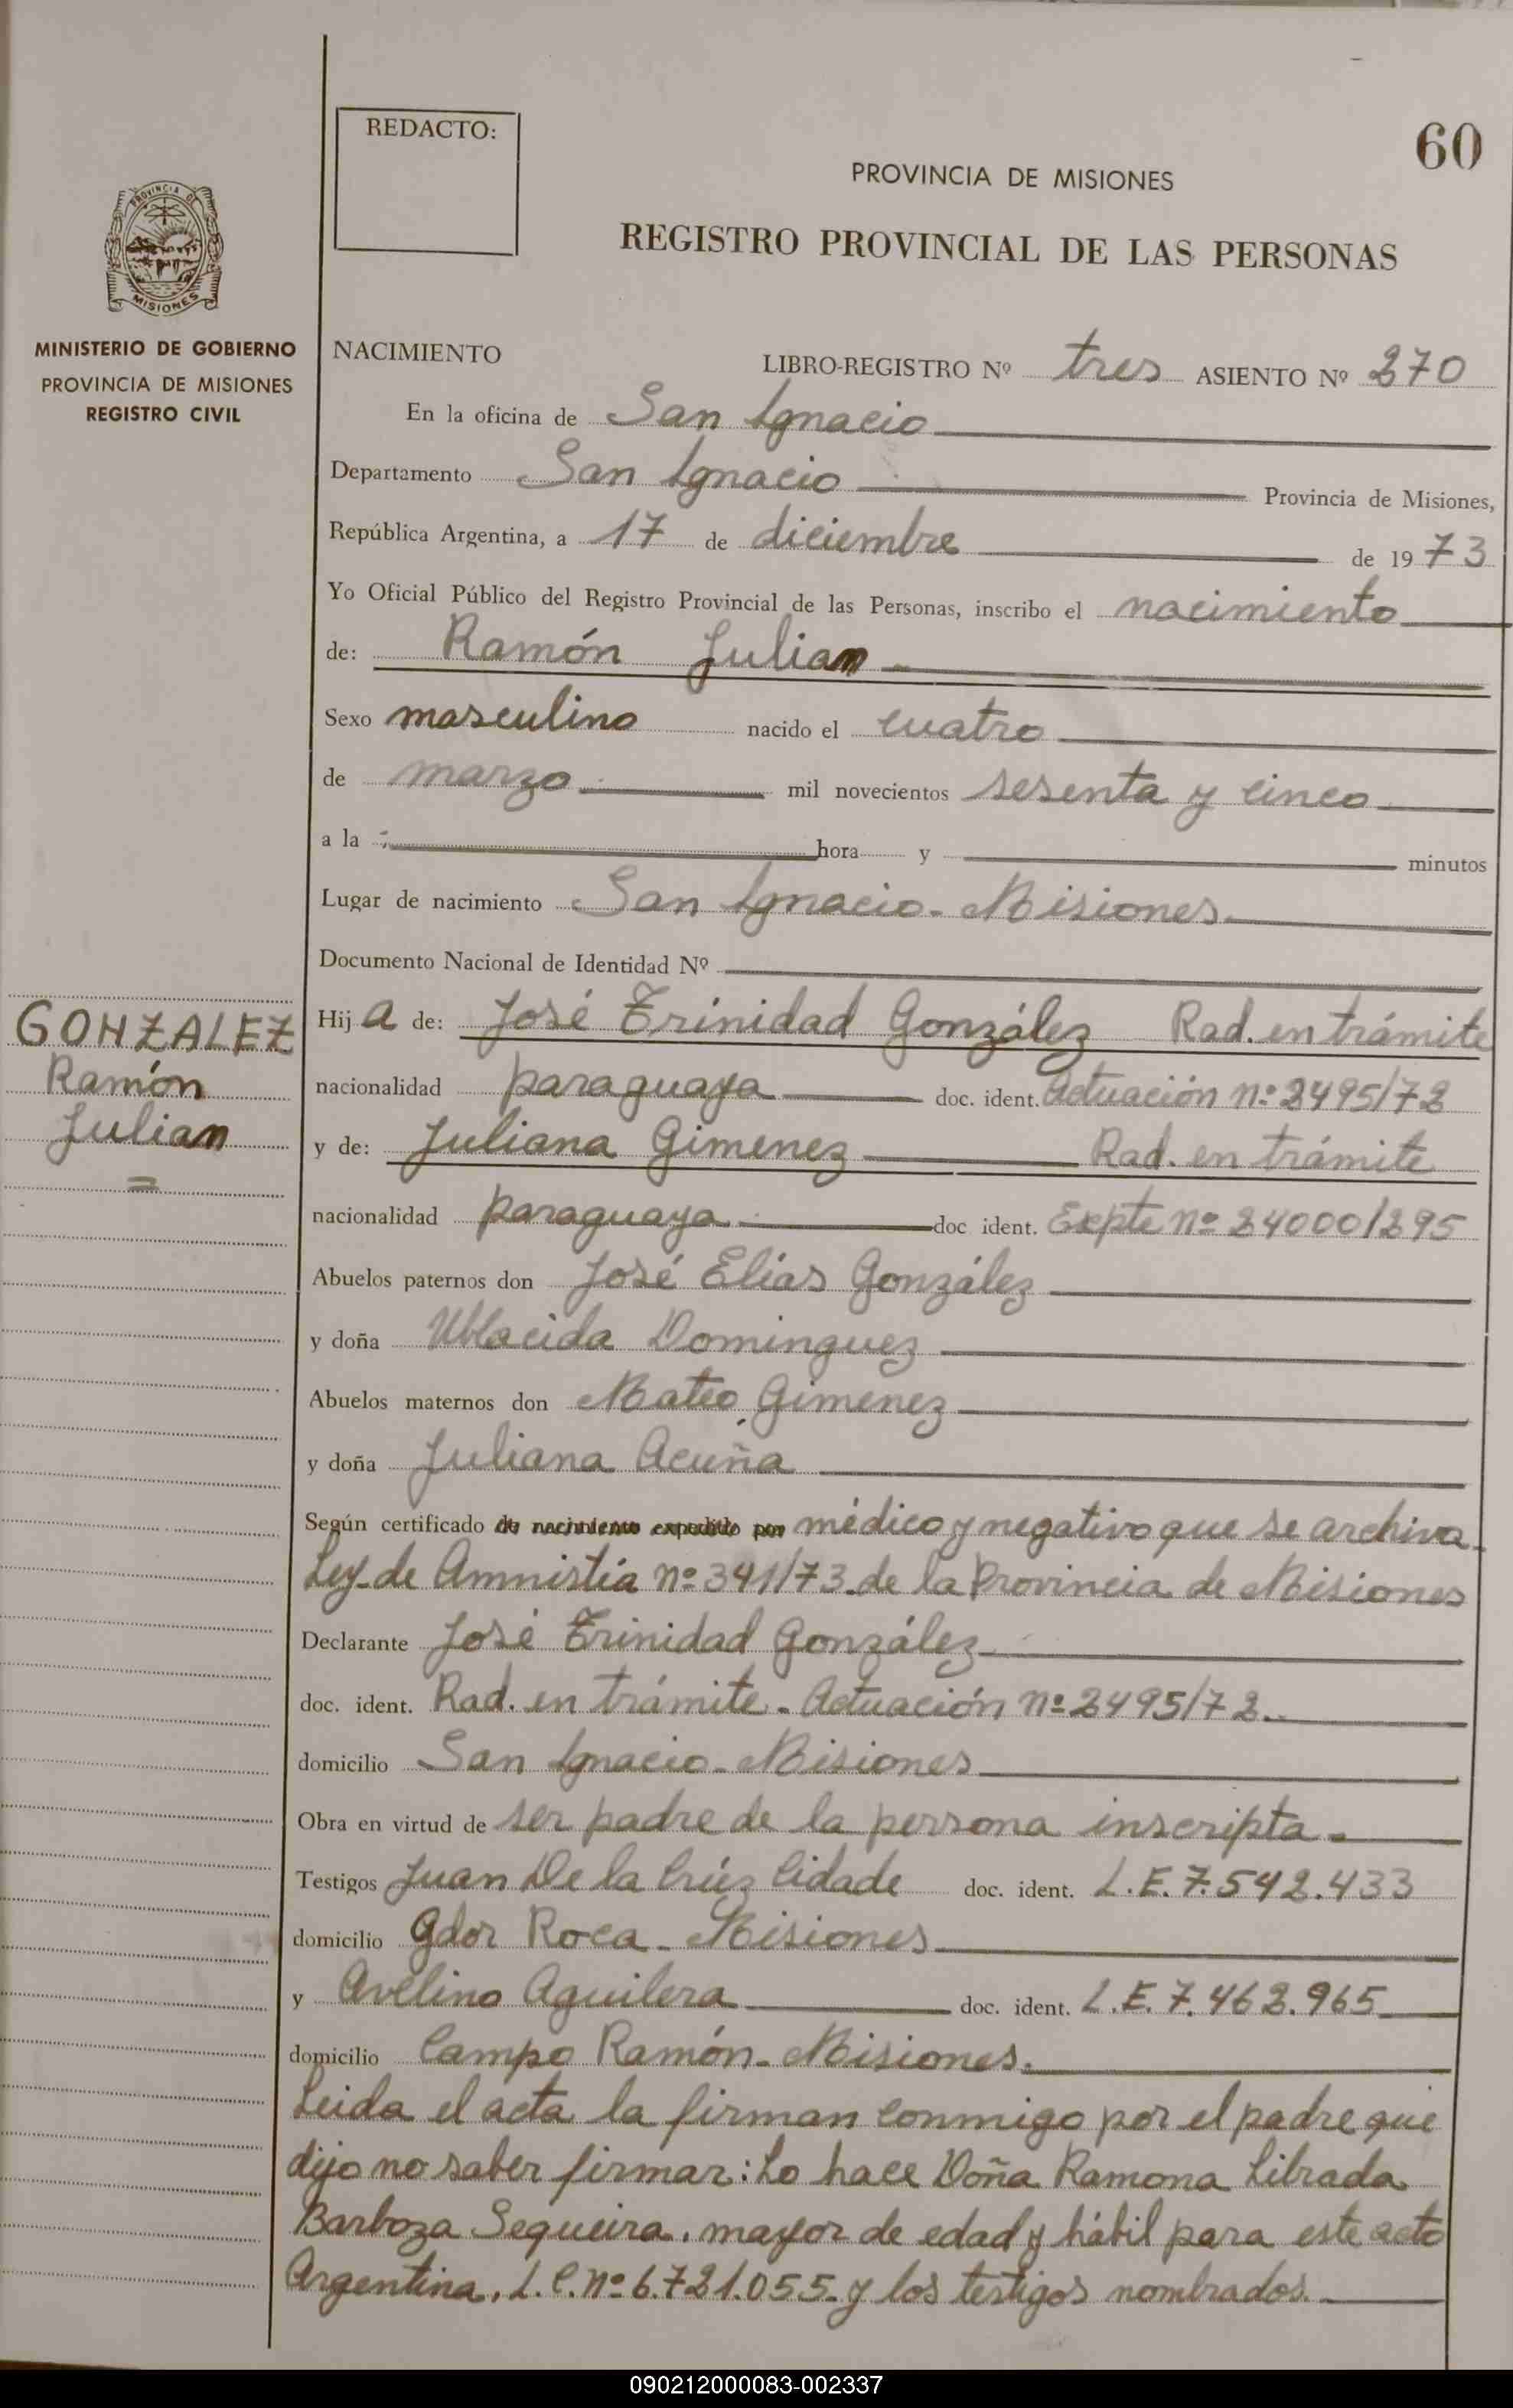 REDACTO:
60
PROVINCIA DE MISIONES
REGISTRO PROVINCIAL DE LAS PERSONAS
PROVINCIA DE
MISIONES
MINISTERIO DE GOBIERNO
PROVINCIA DE MISIONES
REGISTRO CIVIL
NACIMIENTO LIBRO-REGISTRO Nº tres ASIENTO Nº 270
En la oficina de San Ignacio
Departamento San Ignacio Provincia de Misiones,
República Argentina, a 17 de diciembre de 1973
Yo Oficial Público del Registro Provincial de las Personas, inscribo el nacimiento
de: Ramón Julian
Sexo masculino nacido el cuatro
de marzo mil novecientos sesenta y cinco
a la hora y minutos
Lugar de nacimiento San Ignacio - Misiones
Documento Nacional de Identidad Nº
GONZALEZ
Ramón
Julian
Hija de: José Trinidad González Rad. en trámite
nacionalidad paraguaya doc. ident. Actuación nº 2495/72
y de: Juliana Gimenez Rad. en trámite
nacionalidad paraguaya doc. ident. Expte nº 24000/295
Abuelos paternos don José Elías González
y doña Ublacida Dominguez
Abuelos maternos don Mateo Gimenez
y doña Juliana Acuña
Según certificado de nacimiento expedido por médico y negativo que se archiva
Ley de Amnistía nº 341/73 de la Provincia de Misiones
Declarante José Trinidad González
doc. ident. Rad. en trámite - Actuación nº 2495/72
domicilio San Ignacio - Misiones
Obra en virtud de ser padre de la persona inscripta -
Testigos Juan De la Crúz Cidade doc. ident. L.E. 7.542.433
domicilio Gdor Roca - Misiones
y Avelino Aguilera doc. ident. L.E. 7.462.965
domicilio Campo Ramón - Misiones.
Leida el acta la firman conmigo por el padre que
dijo no saber firmar: Lo hace Doña Ramona Librada
Barboza Sequeira, mayor de edad y hábil para este acto
Argentina, L.C. nº 6.721.055 - y los testigos nombrados.
090212000083-002337